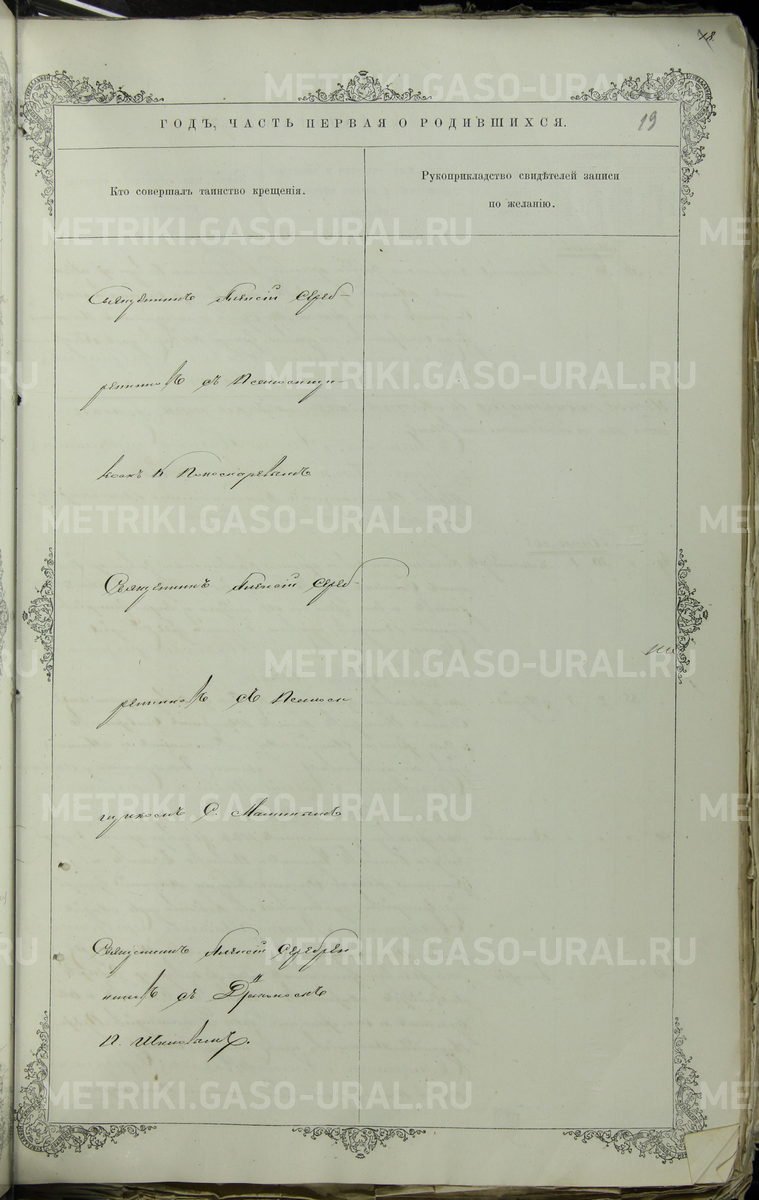 18
19
ГОДЪ, ЧАСТЬ ПЕРВАЯ О РОДИВШИХСЯ.
Кто совершалъ таинство крещенія.
Рукоприкладство свидѣтелей записи
по желанію.
Священникъ Алексій Сереб-
ренниковъ съ Псаломщи-
комъ
Священникъ Алексій Сереб-
ренниковъ съ Псалом
щикомъ С.
Священникъ Алексій Серебрен
никовъ съ Діакономъ
П.
METRIKI.GASO-URAL.RU